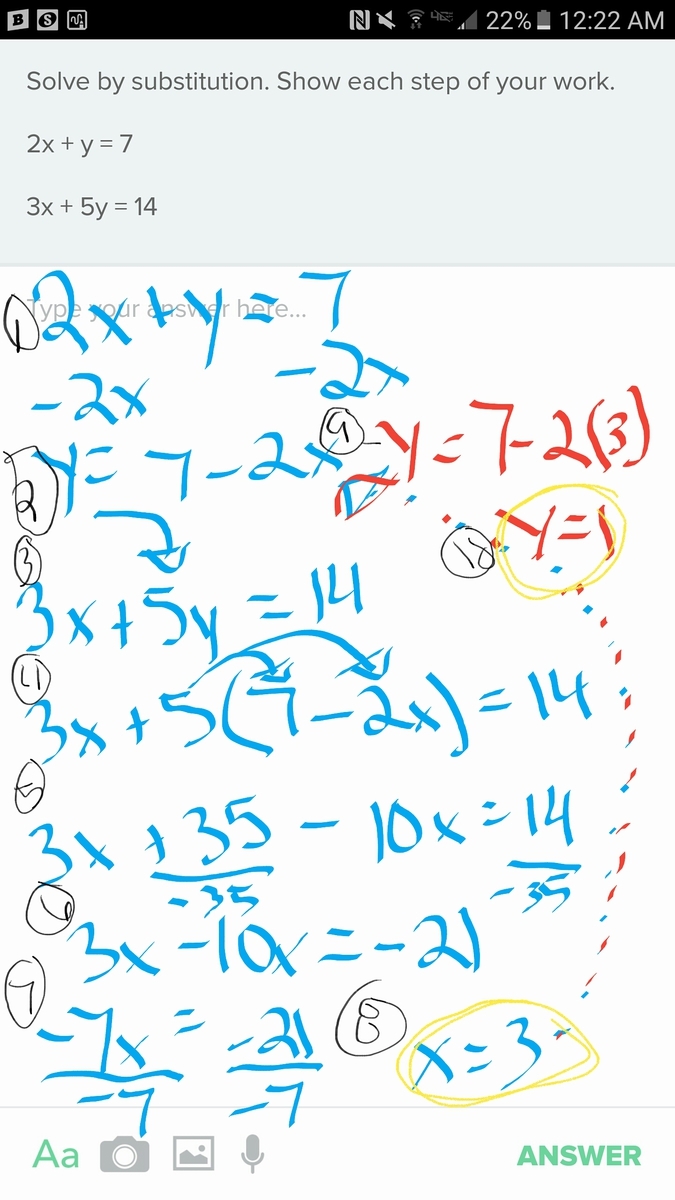 22% 12:22 AM
Solve by substitution. Show each step of your work.
2x + y = 7
3x + 5y = 14
Type your answer here...
① 2x + y = 7
-2x -2x
② y = 7 - 2x
③ 3x + 5y = 14
④ 3x + 5(7 - 2x) = 14
⑤ 3x + 35 - 10x = 14
-35 -35
⑥ 3x - 10x = -21
⑦ -7x = -21
-7 -7
⑧ x = 3
⑨ y = 7 - 2(3)
y = 1
Aa ANSWER